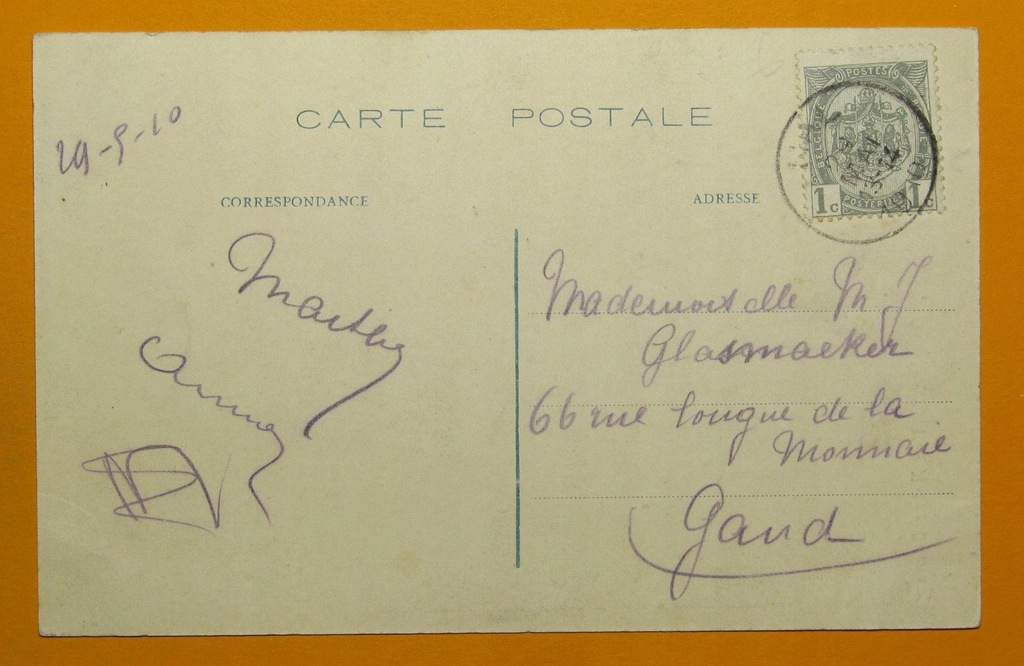 CARTE POSTALE
29-5-10
CORRESPONDANCE
ADRESSE
POSTES
BELGIQUE
1c 1c
POSTERIJEN
Marthe
Anna
Mademoiselle M. J
Glasmaeker
66 rue longue de la
Monnaie
Gand